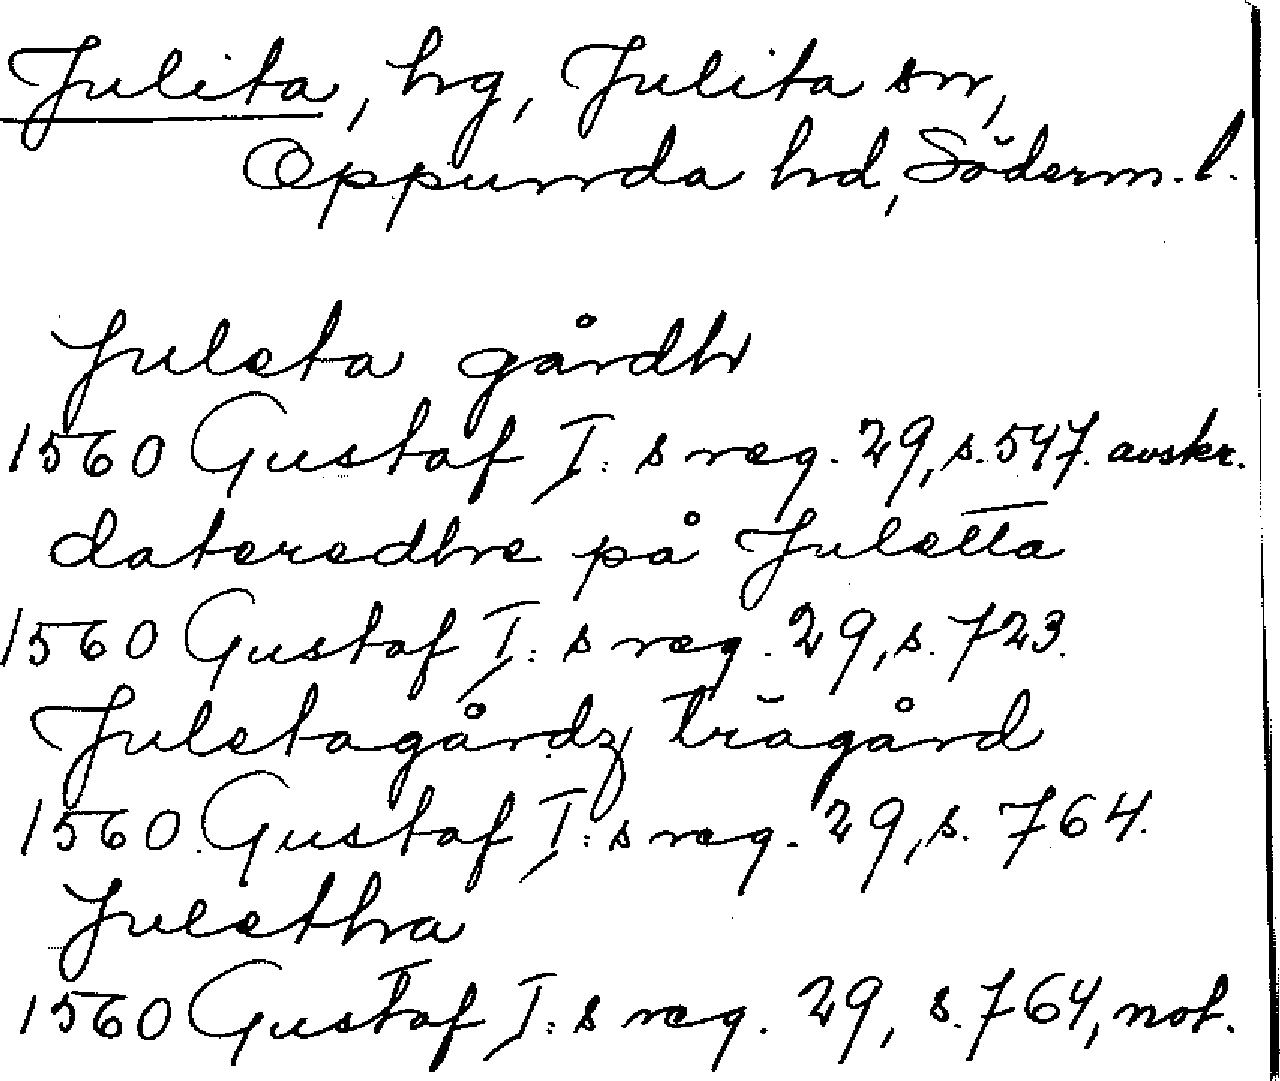 Julita, hg, Julita sn,
Oppunda hd, Söderm. l.
Juleta gårdh
1560 Gustaf I:s reg. 29, s. 547. avskr.
dateredhe på Juletta
1560 Gustaf I:s reg. 29, s. 723.
Juletagårdz trägård
1560 Gustaf I:s reg. 29, s. 764.
Juletha
1560 Gustaf I:s reg. 29, s. 764, not.